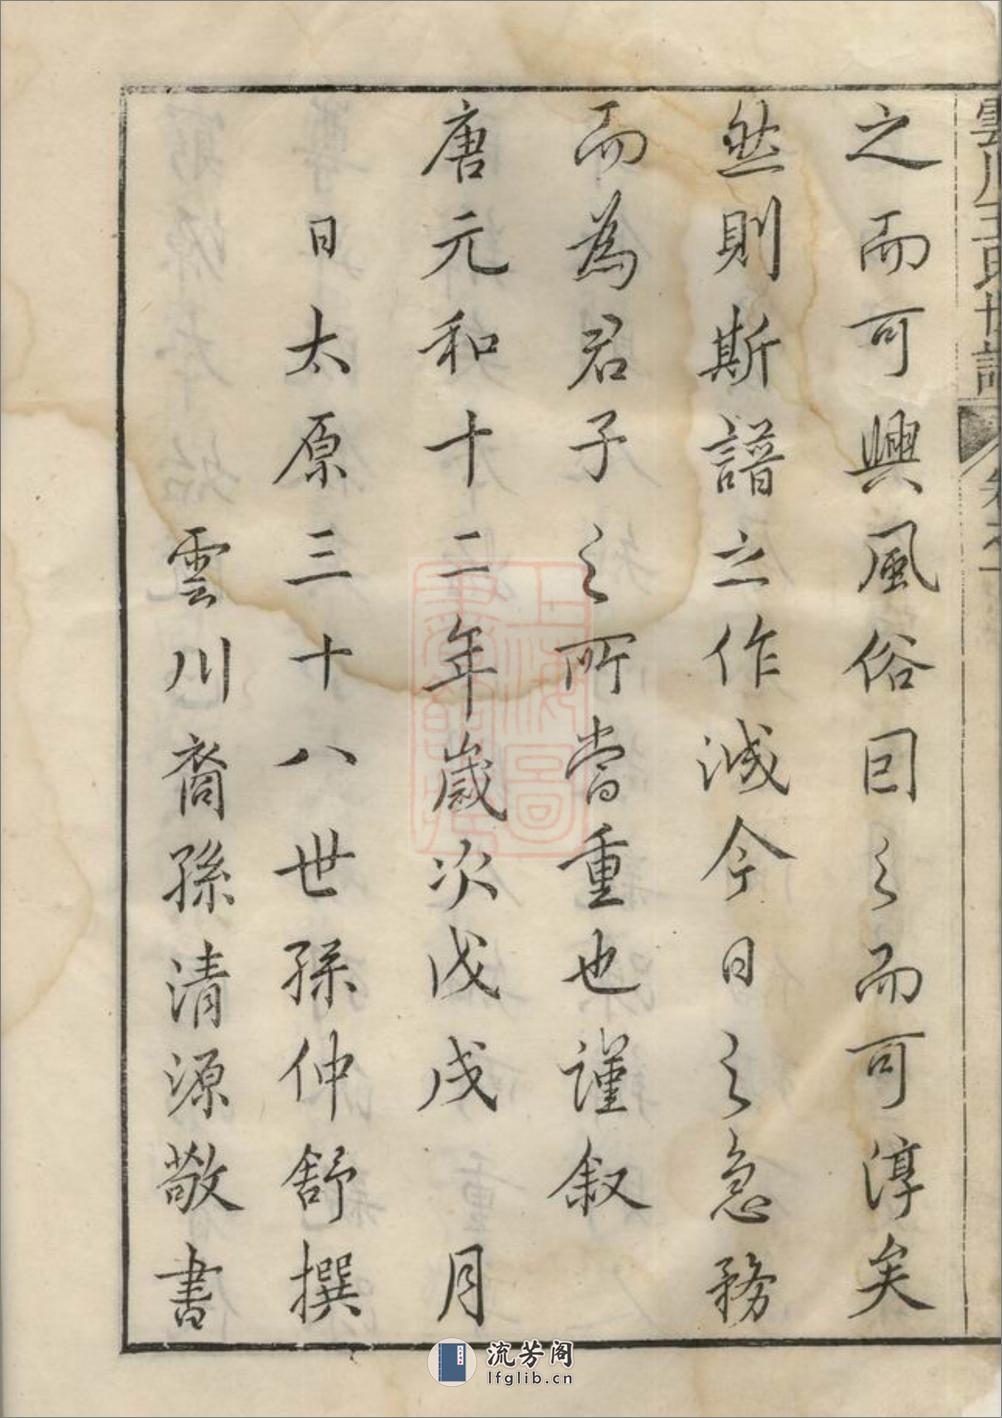 雲川王氏世譜 卷之一
之而可興風俗因之而可淳矣
然則斯譜之作誠今日之急務
而為君子之所當重也謹叙
唐元和十二年歲次戊戌 月
日太原三十八世孫仲舒撰
雲川裔孫清源敬書
上海圖書館藏
流芳阁
lfglib.cn